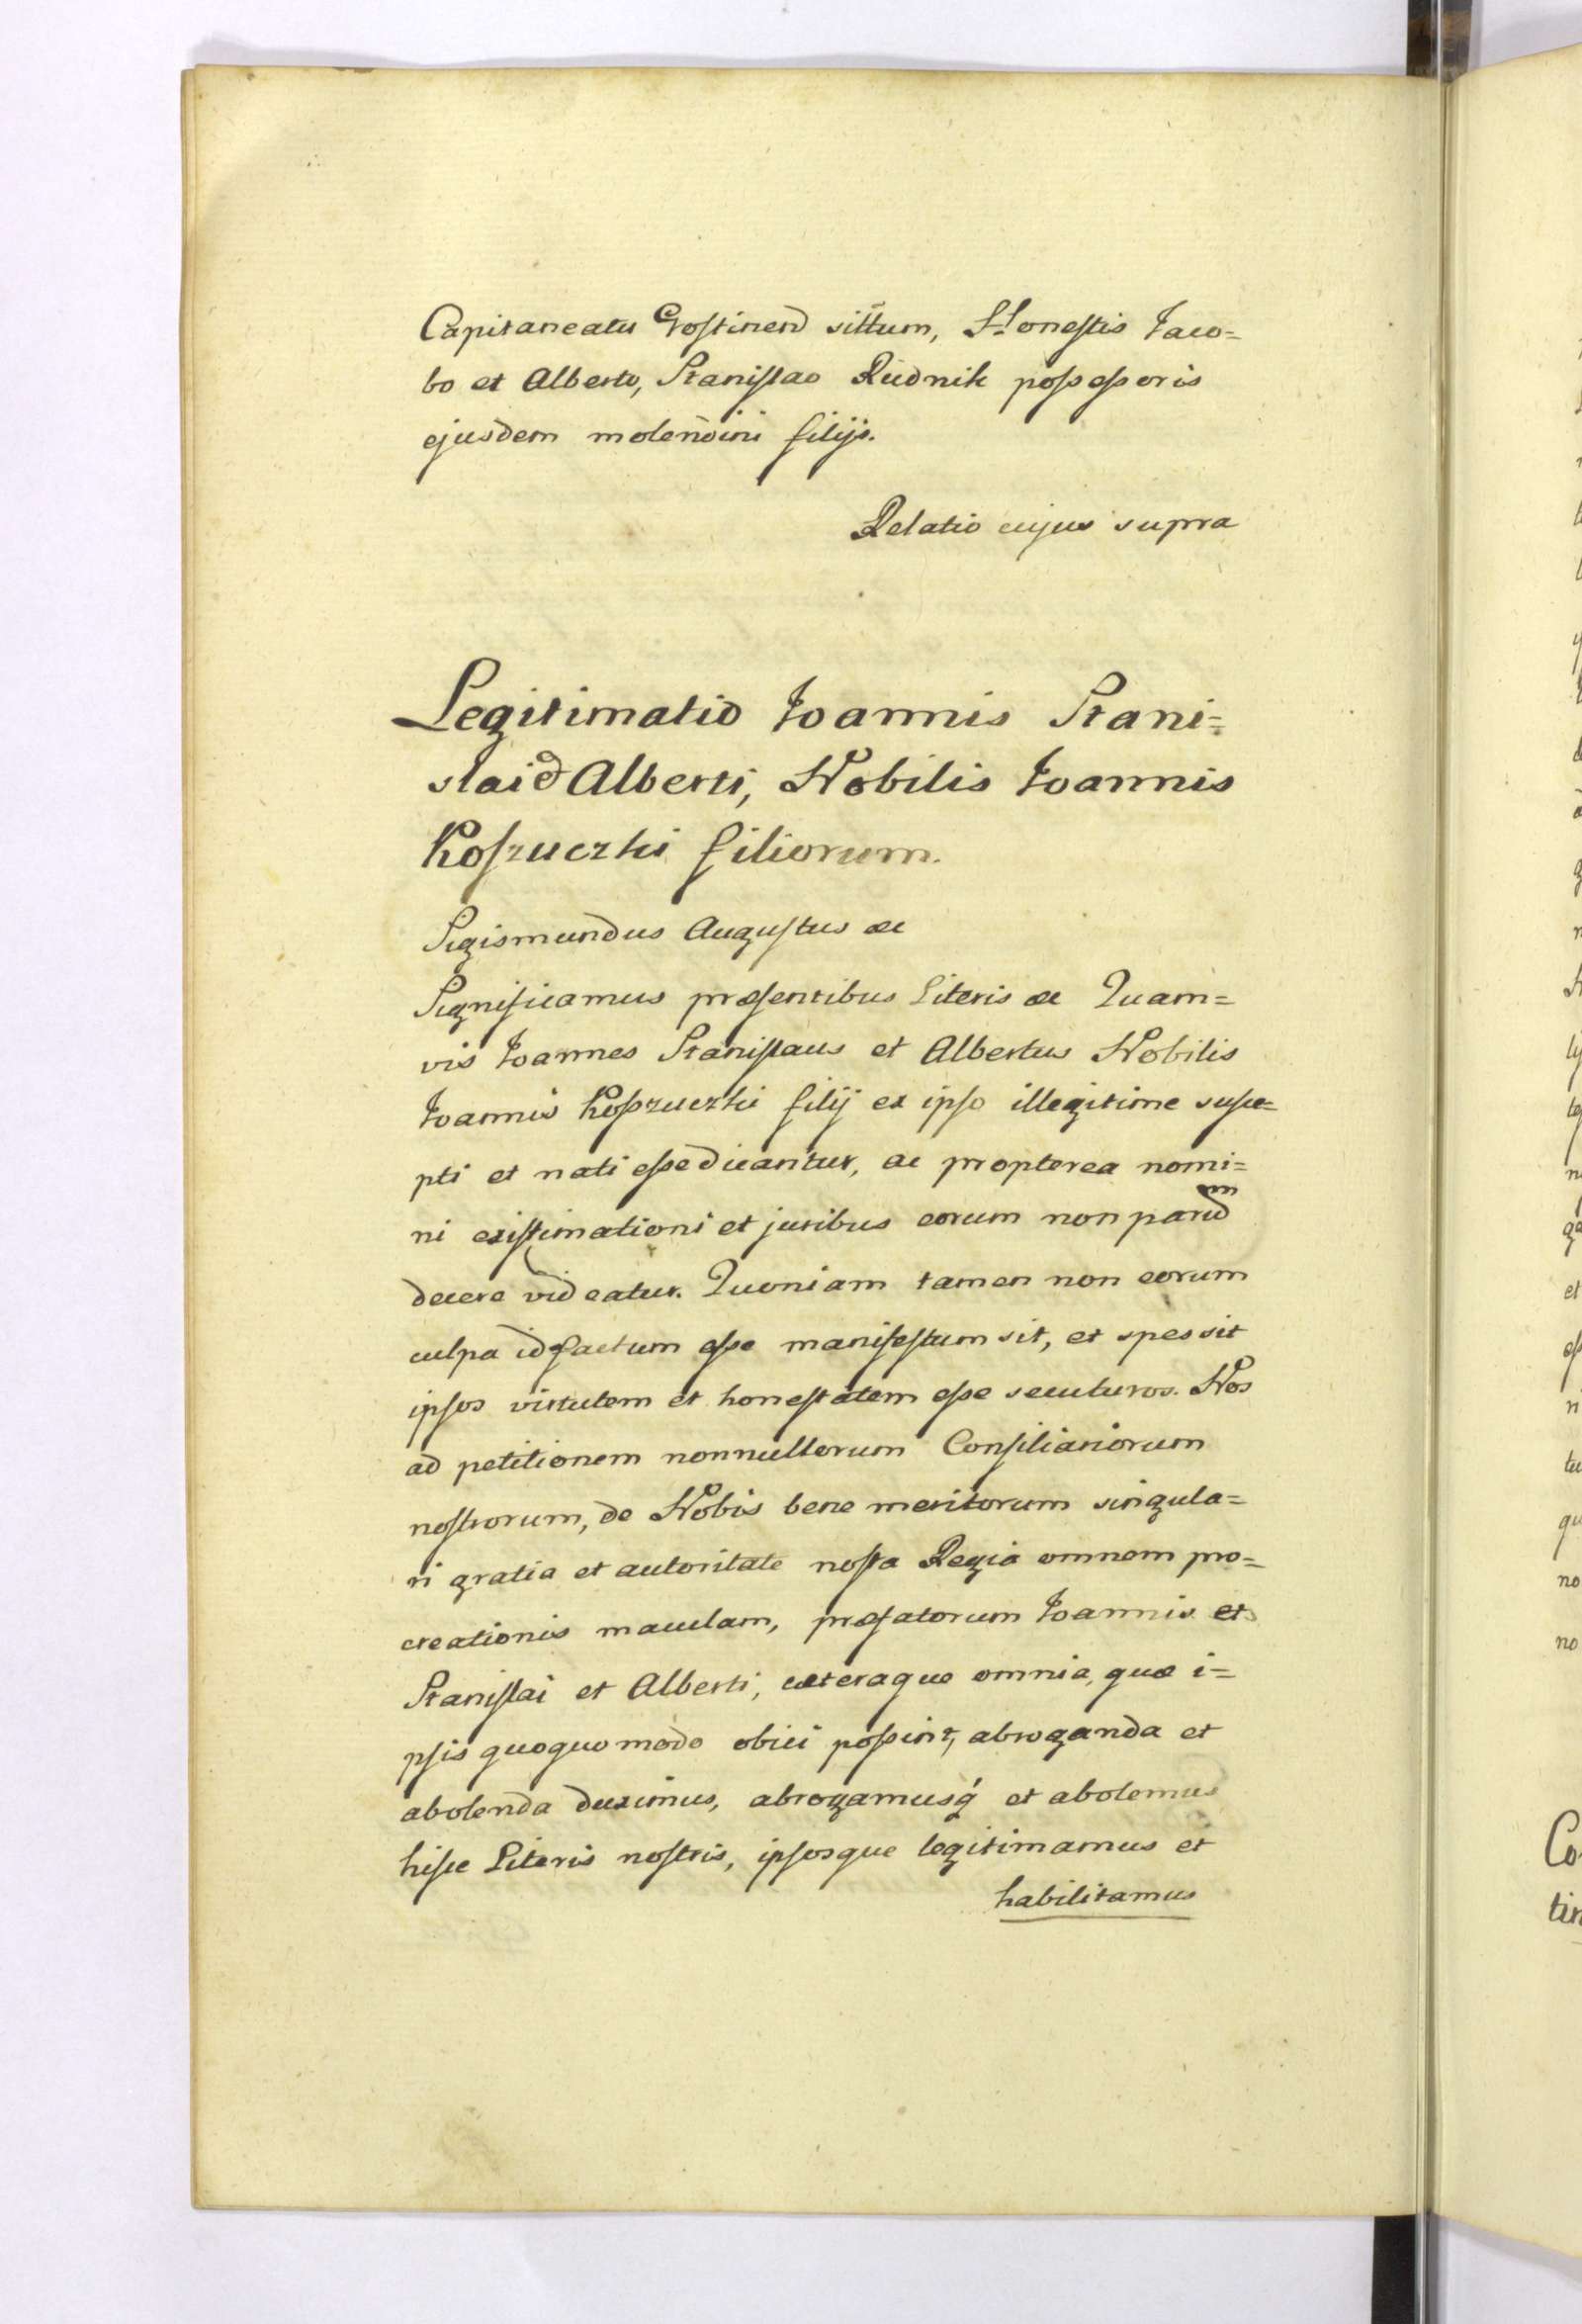 Capitaneatu Gostinen̄ sittum, Honestis Jaco=
bo et Alberto, Stanislao Rudnik possessoris
ejusdem molendini filijs.
Relatio cujus supra
Legitimatio Joannis Stani=
slai & Alberti, Nobilis Joannis
Koszuczki filiorum.
Sigismundus Augustus &c
Significamus præsentibus Literis &c Quam=
vis Joannes Stanislaus et Albertus Nobilis
Joannis Koszuczki filij ex ipso illegitime susce=
pti et nati esse dicantur, ac propterea nomi=
ni existimationi et juribus eorum non parum
decere videatur. Quoniam tamen non eorum
culpa id factum esse manifestum sit, et spes sit
ipsos virtutem et honestatem esse secuturos. Nos
ad petitionem nonnullorum Consiliariorum
nostrorum, de Nobis bene meritorum singula=
ri gratia et autoritate nostra Regia omnem pro=
creationis maculam, præfatorum Joannis et
Stanislai et Alberti, cæteraque omnia, quæ i=
psis quoquomodo obici possint, abroganda et
abolenda duximus, abrogamusq́ et abolemus
hisce Literis nostris, ipsosque legitimamus et
habilitamus